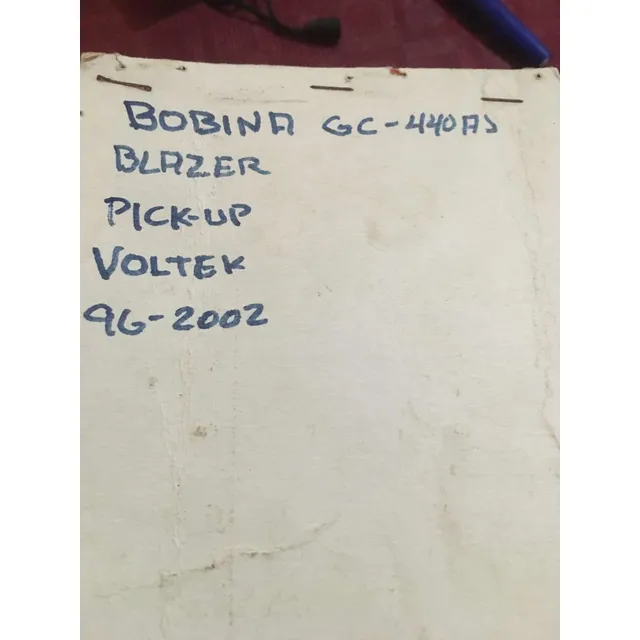 BOBINA GC-440AJ
BLAZER
PICK-UP
VOLTEK
96-2002